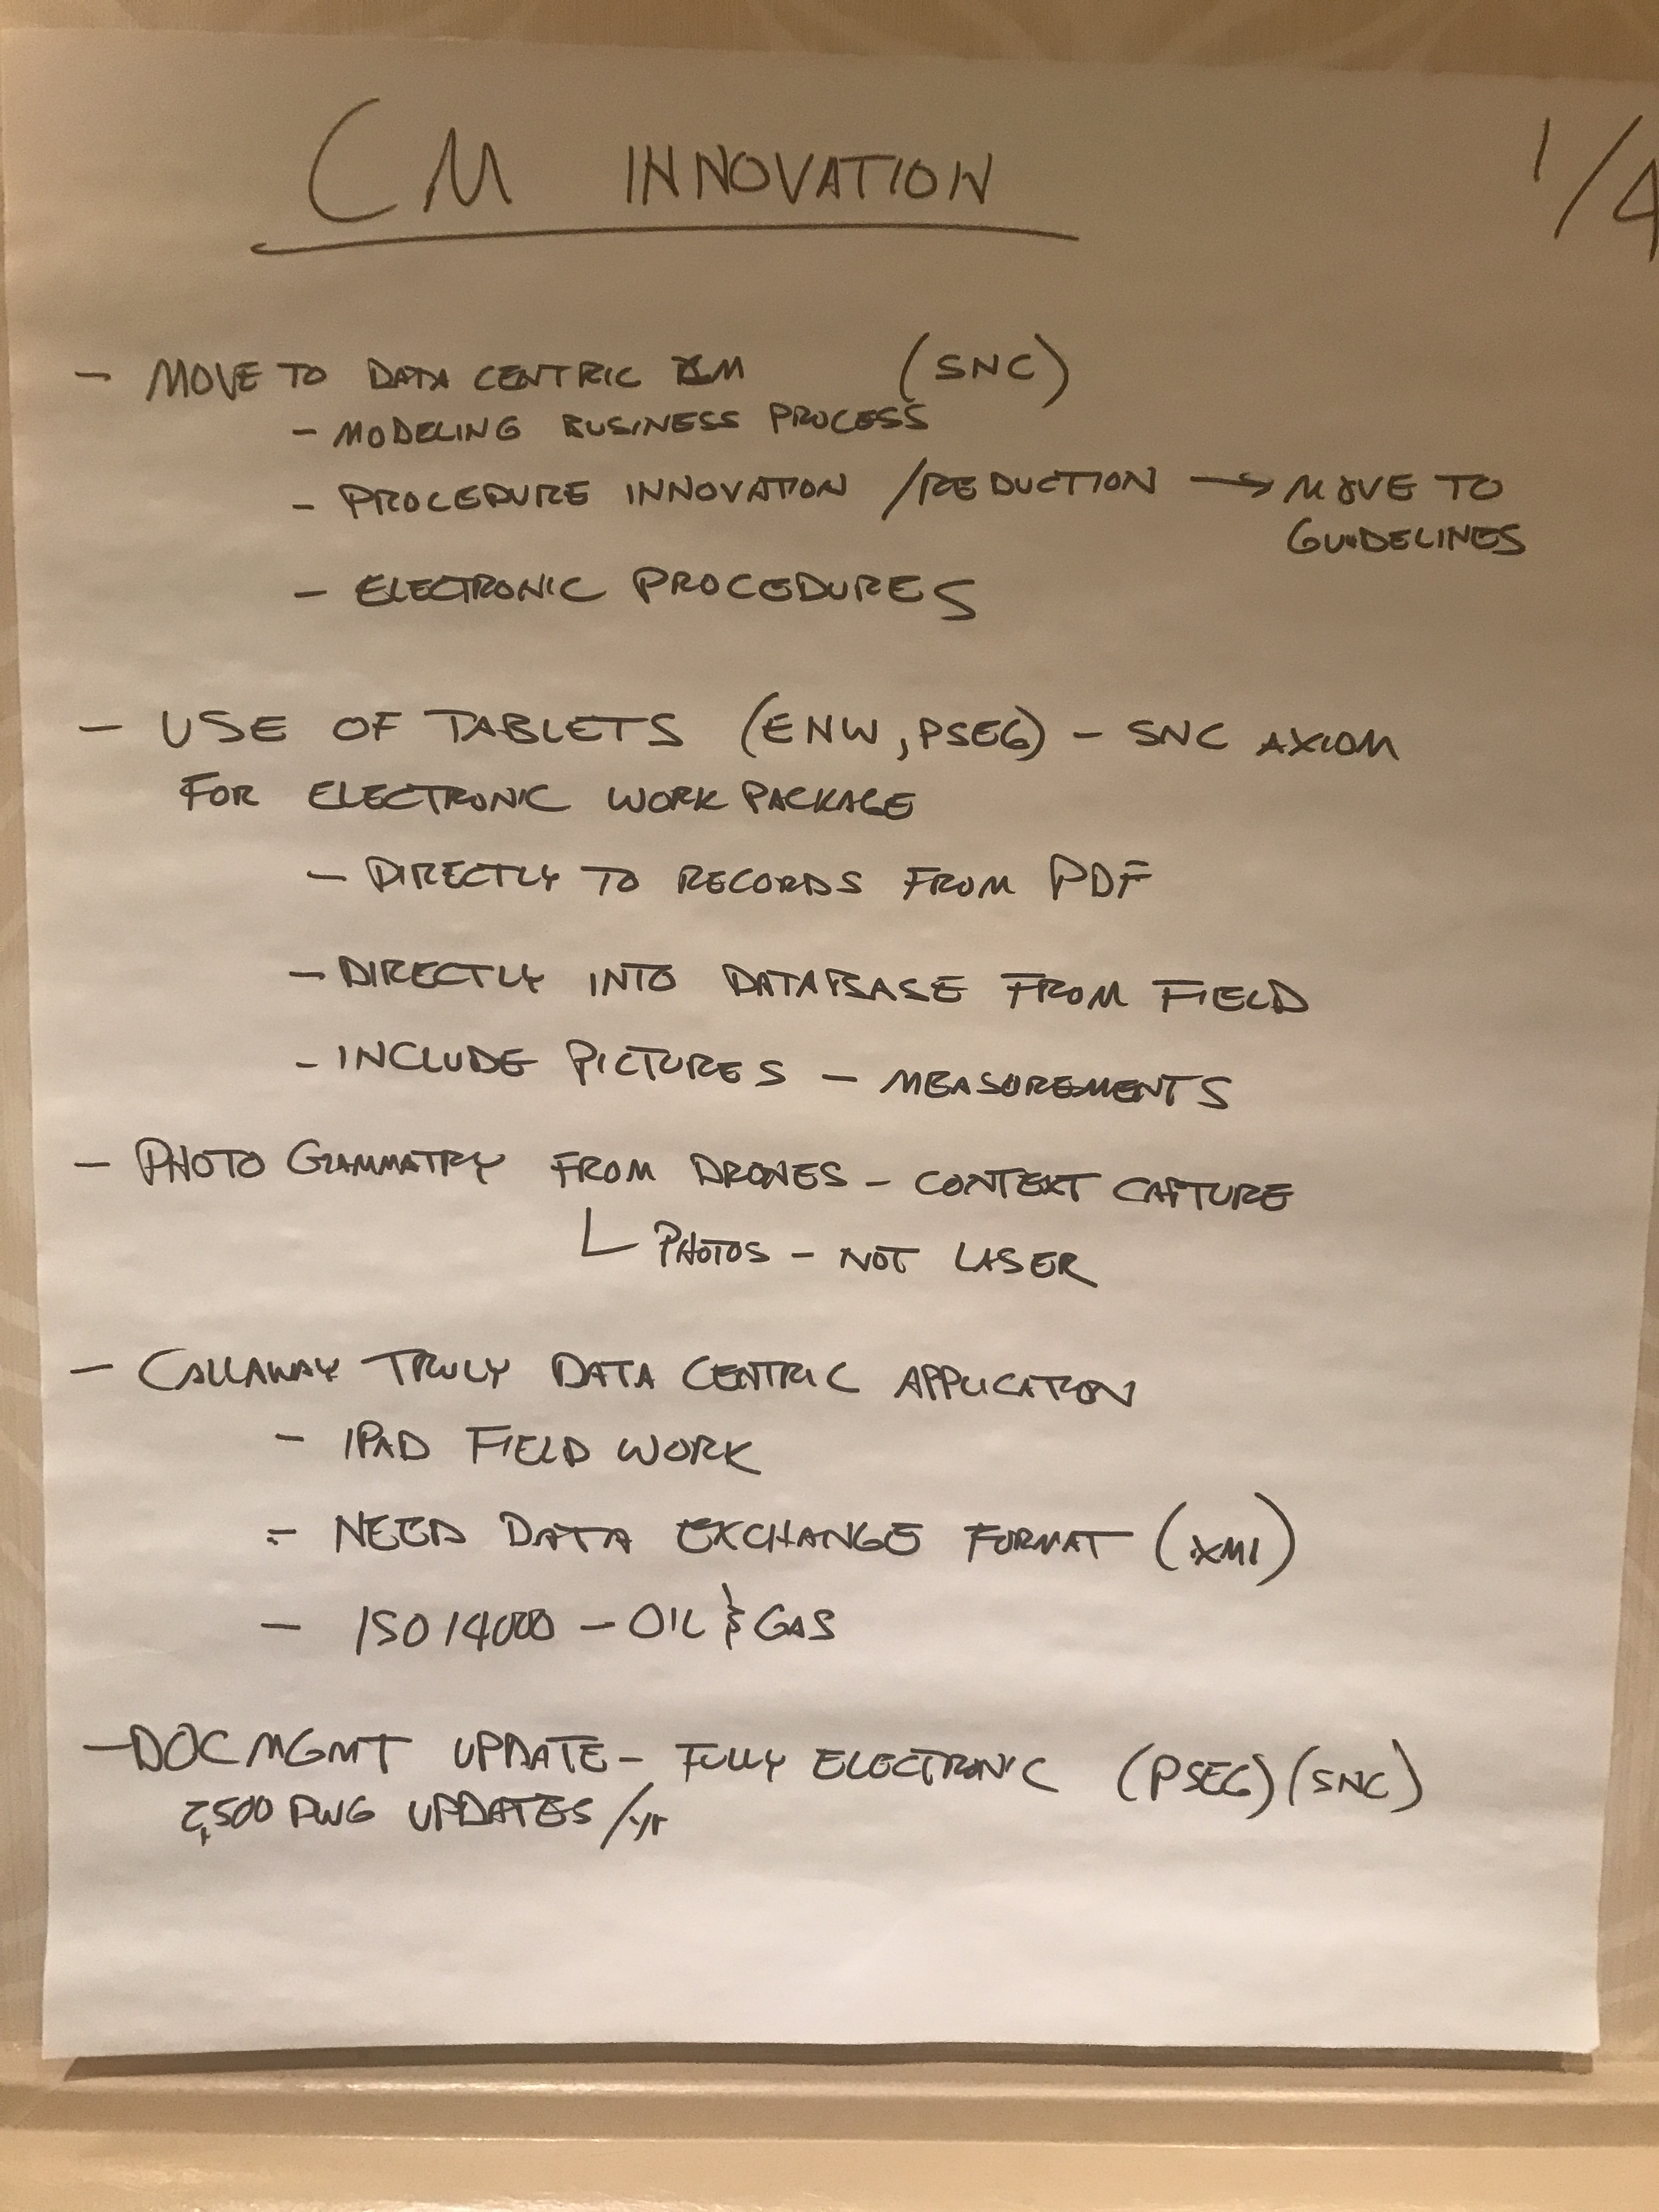 CM INNOVATION
1/4
- MOVE TO DATA CENTRIC CM (SNC)
- MODELING BUSINESS PROCESS
- PROCEDURE INNOVATION /REDUCTION → MOVE TO
GUIDELINES
- ELECTRONIC PROCEDURES
- USE OF TABLETS (ENW, PSEG) - SNC AXIOM
FOR ELECTRONIC WORK PACKAGE
- DIRECTLY TO RECORDS FROM PDF
- DIRECTLY INTO DATABASE FROM FIELD
- INCLUDE PICTURES - MEASUREMENTS
- PHOTO GRAMMATRY FROM DRONES - CONTEXT CAPTURE
PHOTOS - NOT LASER
- CALLAWAY TRULY DATA CENTRIC APPLICATION
- IPAD FIELD WORK
- NEED DATA EXCHANGE FORMAT (.XMI)
- ISO 14000 - OIL & GAS
- DOC MGMT UPDATE - FULLY ELECTRONIC (PSEG) (SNC)
2,500 DWG UPDATES /yr